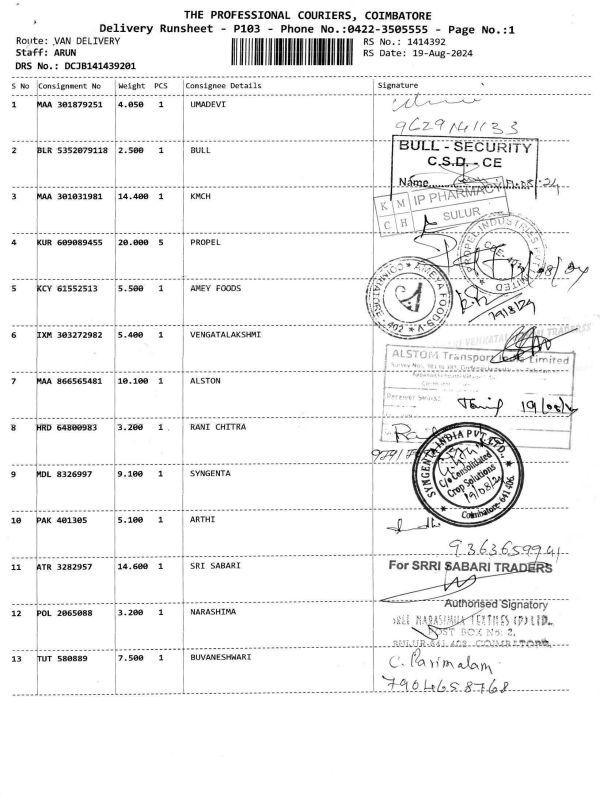 THE PROFESSIONAL COURIERS, COIMBATORE
Delivery Runsheet - P103 - Phone No.:0422-3505555 - Page No.:1
Route: VAN DELIVERY RS No.: 1414392
Staff: ARUN RS Date: 19-Aug-2024
DRS No.: DCJB141439201
S No Consignment No Weight PCS Consignee Details Signature
1 MAA 301879251 4.050 1 UMADEVI
9629141133
2 BLR 5352079118 2.500 1 BULL
BULL - SECURITY
C.S.D. - CE
Name
3 MAA 301031981 14.400 1 KMCH
K M C H IP PHARMACY
SULUR
4 KUR 609089455 20.000 5 PROPEL
PROPEL INDUSTRIES
5 KCY 61552513 5.500 1 AMEY FOODS
AMEYA FOODS
COIMBATORE - 402
19/8/24
6 IXM 303272982 5.400 1 VENGATALAKSHMI
SRI VENKATA TRADERSS
7 MAA 866565481 10.100 1 ALSTON
ALSTOM Transport Limited
19/08/24
8 HRD 64800983 3.200 1 RANI CHITRA
9 MDL 8326997 9.100 1 SYNGENTA
SYNGENTA INDIA PVT. LTD.
C/o Consolidated
Crop Solutions
19/08/24
Coimbatore- 641 406.
10 PAK 401305 5.100 1 ARTHI
9363659941
11 ATR 3282957 14.600 1 SRI SABARI
For SRRI SABARI TRADERS
Authorised Signatory
12 POL 2065088 3.200 1 NARASHIMA
SREE NARASIMHA TEXTILES (P) LTD.,
POST BOX No: 2,
SULUR-641 402 COIMBATORE
13 TUT 580889 7.500 1 BUVANESHWARI
C. Parimalam
7904658768